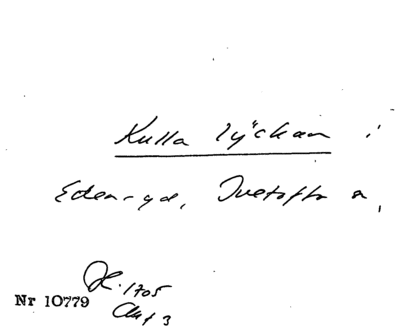 Kulla lyckan i
Edenryd, Ivetofta s,
Nr 10779
1705